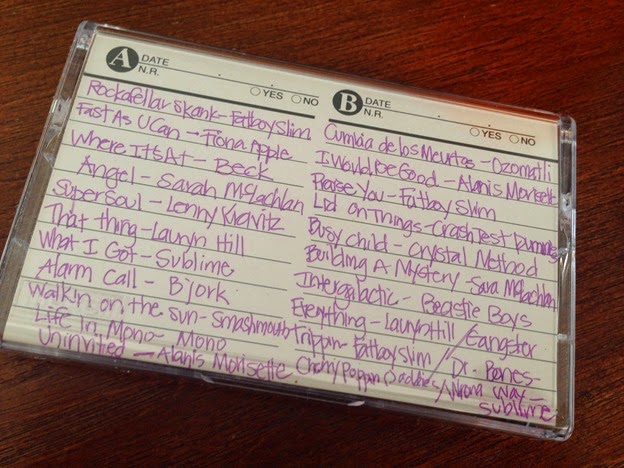 A DATE
N.R.
YES NO
Rockafellar Skank - Fatboy Slim
Fast As U Can - Fiona Apple
Where It's At - Beck
Angel - Sarah McLachlan
Supersoul - Lenny Kravitz
That thing - Lauryn Hill
What I Got - Sublime
Alarm Call - B'jork
Walk'n on the sun - Smashmouth
Life in Mono - Mono
Uninvited - Alanis Morisette
B DATE
N.R.
YES NO
Cumbia de los Meurtas - Ozomatli
I Would Be Good - Alanis Morisette
Praise You - Fatboy Slim
Lid On Things - Crash Test Dummies
Busy child - Crystal Method
Building A Mystery - Sara McLachlan
Intergalactic - Beastie Boys
Everything - Lauryn Hill / Gangster
trippin - Fatboy Slim // Dr. Bones -
Cherry Poppin Daddies / Wrong Way -
Sublime